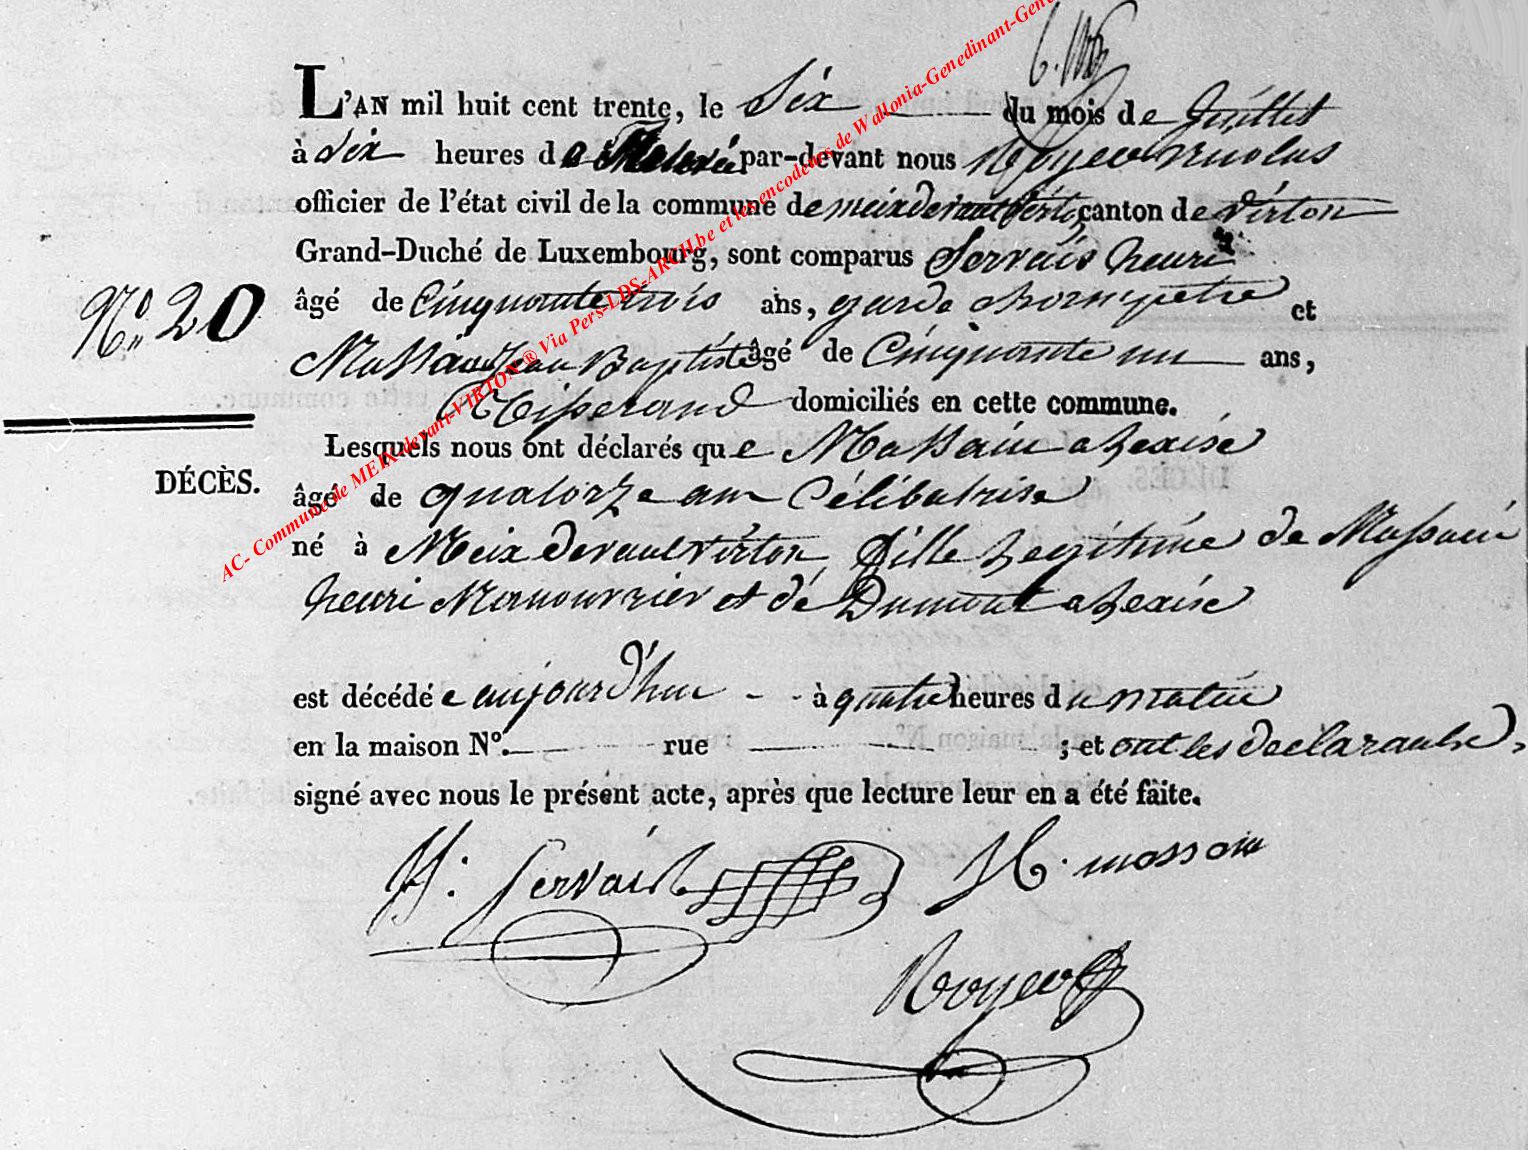 L'AN mil huit cent trente, le Six du mois de Juillet
à Six heures de Relevée par-devant nous Royer nicolas
officier de l'état civil de la commune de meix devant Virton, canton de Virton
Grand-Duché de Luxembourg, sont comparus Servais henri
âgé de Cinquante trois ans, garde champetre et
N° 20
Massain Jean Baptiste âgé de Cinquante un ans,
Tisserand domiciliés en cette commune.
Lesquels nous ont déclarés que Massain alexise
DÉCÈS.
âgé de quatorze an Célibatrise
né à Meix devant virton, fille Legitime de Massain
henri Manouvrier et de Dumont alexise
est décédée aujourd'hui à quatre heures du matin
en la maison N°. rue ; et ont les declarants
signé avec nous le présent acte, après que lecture leur en a été faite.
H. Servais
massain
Royer
AC- Commune de MEIX-devant-VIRTON® Via Pers-LDS-ARCH.be et les encodeurs de Wallonia-Genedinant-Gene